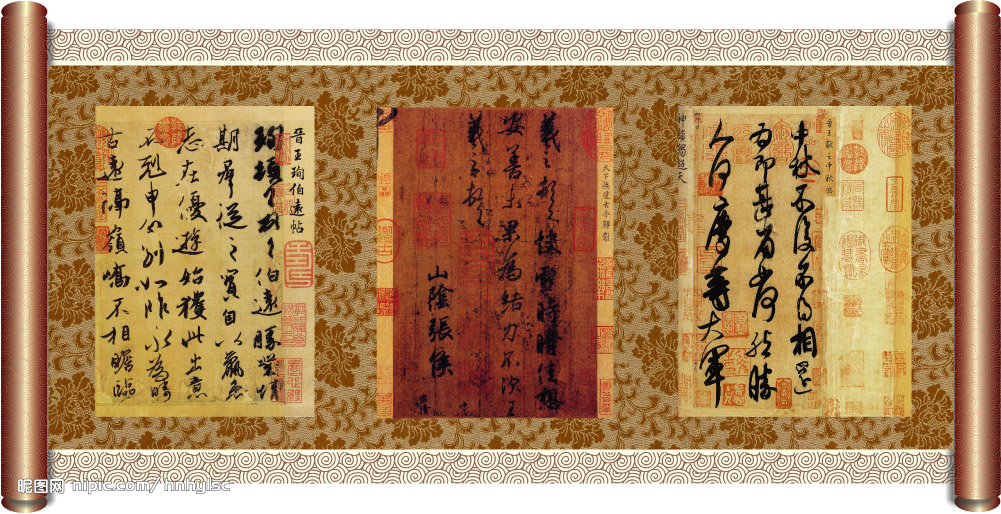 晉王獻之中秋帖
中秋不復不得相還
為即甚省如何然勝
人何慶等大軍
天下無雙古今鮮對
羲之頓首快雪時晴佳想
安善未果為結力不次王
羲之頓首
山陰張侯
晉王珣伯遠帖
珣頓首頓首伯遠勝業情
期群從之寶自以羸患
志在優遊始獲此出意
不剋申分別如昨永為疇
古遠隔嶺嶠不相瞻臨
昵图网 nipic.com/ hnhylsc